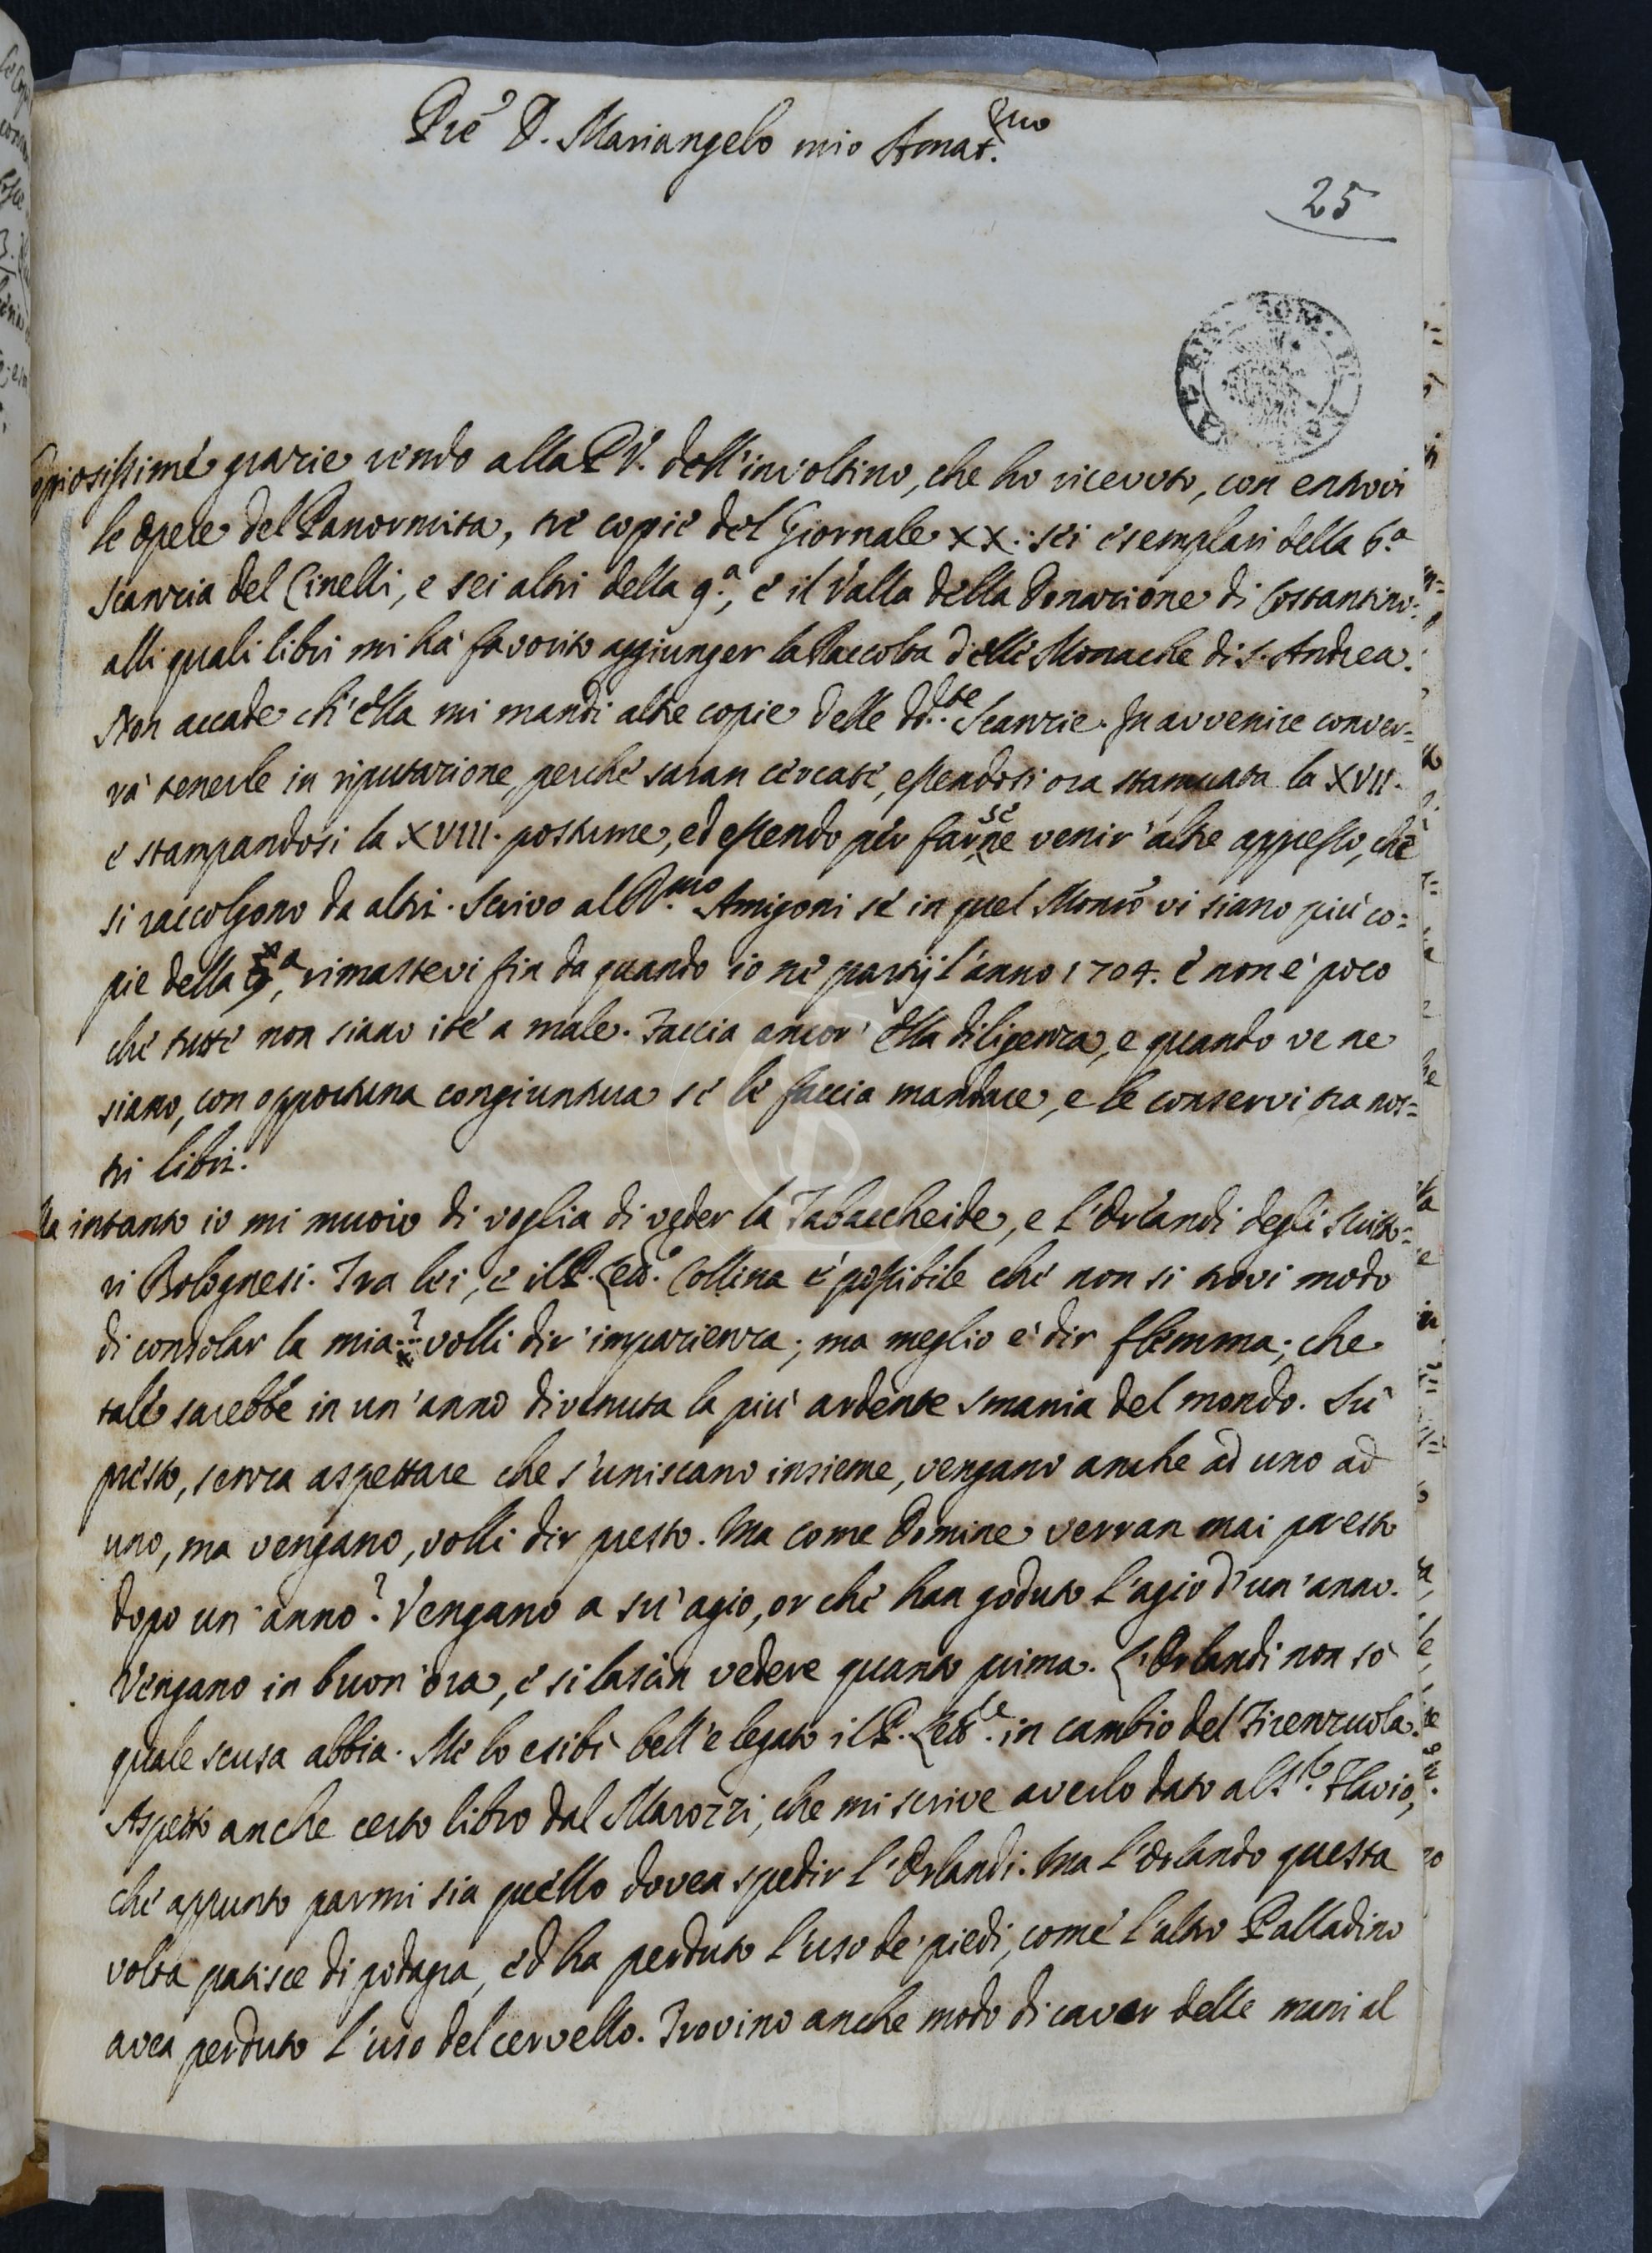 Pre D. Mariangelo mio Amat.mo
25
Copiosissime grazie rendo alla P.V. dell'involtino, che ho ricevuto, con entrovi
le opere del Panormita, tre copie del Giornale XX. sei esemplari della 6.a
Scanzia del Cinelli, e sei altri della 9.a, e il Valla della Donazione di Costantino:
alli quali libri mi ha favorito aggiunger la Raccolta delle Monache di S. Andrea.
Non accade ch'ella mi mandi altre copie delle dd.te Scanzie. In avvenire conver=
rà tenerle in riputazione, perchè saran cercate, essendosi ora stampata la XVII.
e stampandosi la XVIII. postume, ed essendo per farsene venir' altre appresso, che
si raccolgono da altri. Scrivo al P.mo Amigoni se in quel Monro vi siano più co=
pie della X.a, rimastevi fin da quando io ne partij l'anno 1704. e non è poco
che tutte non siano ite a male. Faccia ancor' ella diligenza, e quando ve ne
siano, con opportuna congiuntura se le faccia mandare, e le conservi tra nos=
tri libri.
Ma intanto io mi muoio di voglia di veder la Tabaccheide, e l'Orlandi degli Scritto=
ri Bolognesi. Tra lei, e il P. Collina è possibile che non si trovi modo
di consolar la mia..? volli dir' impazienza; ma meglio è dir flemma; che
tale sarebbe in un'anno divenuta la più ardente smania del mondo. Sù
presto, senza aspettare che s'uniscano insieme, vengano anche ad uno ad
uno, ma vengano, volli dir presto. Ma come Domine verran mai presto
dopo un'anno? Vengano a su' agio, or che han goduto l'agio d'un'anno.
Vengano in buon'ora, e si lascin vedere quanto prima. L'Orlandi non sò
quale scusa abbia. Me lo esibì bell'e legato il P. in cambio del Firenzuola.
Aspetto anche certo libro dal Marozzi, che mi scrive averlo dato al S.r Flavio,
che appunto parmi sia quello dovea spedir l'Orlandi. Ma l'Orlando questa
volta patisce di podagra, ed ha perduto l'uso de' piedi, come l'altro Palladino
avea perduto l'uso del cervello. Trovino anche modo di cavar delle mani al